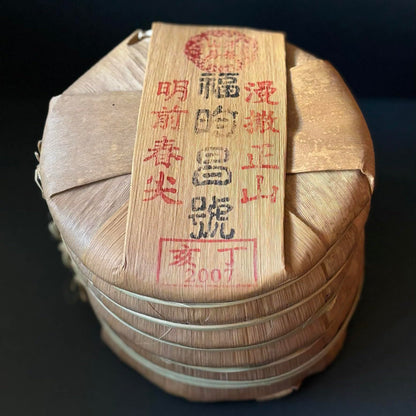 漫撒正山
福昀昌號
明前春尖
丁亥
2007